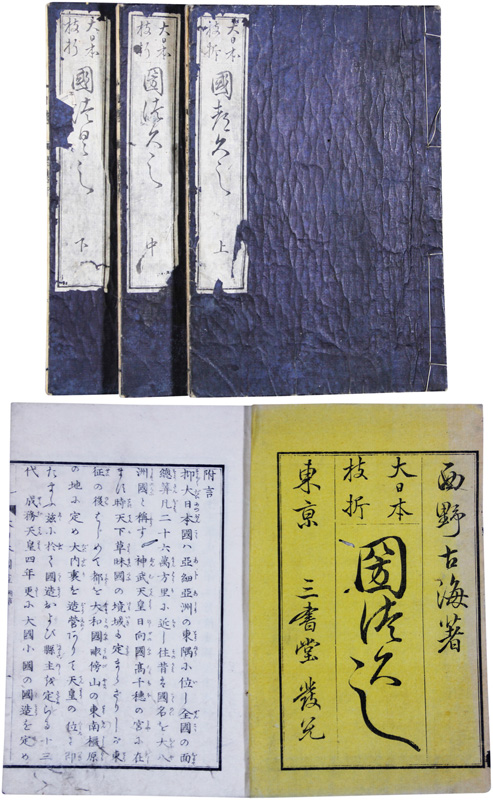 大日本
枝折
國津久之
上
大日本
枝折
國津久之
中
大日本
枝折
國津久之
下
西野古海著
大日本
枝折
國津久之
東京 三書堂 發兌
附言
抑大日本國ハ亜細亜洲の東隅に位し全國の面
總算凡二十六萬方里に近し往昔ハ國名を大八
洲國と稱す神武天皇日向國高千穂の宮に在
ます時天下草昧國の境域も定まらざりしが東
征の後はじめて都を大和國畝傍山の東南橿原
の地に定め大内裏を造營ありて天皇の位に即
たまふ茲に於て國造および縣主を定らる十三
代成務天皇四年更に大國小國の國造を定め